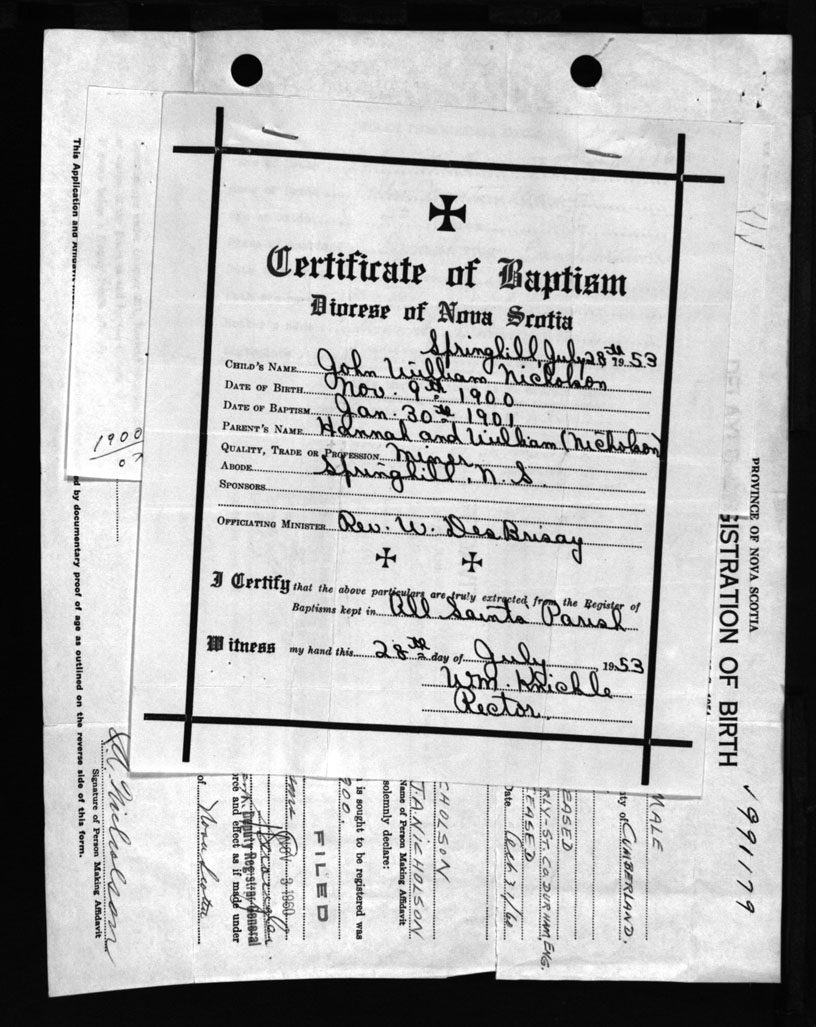 Certificate of Baptism
Diocese of Nova Scotia
Springhill, July 28th 1953
CHILD'S NAME John William Nicholson
DATE OF BIRTH Nov. 9th 1900
DATE OF BAPTISM Jan. 30th 1901
PARENT'S NAME Hannah and William (Nicholson)
QUALITY, TRADE OR PROFESSION Miner
ABODE Springhill, N.S.
SPONSORS
OFFICIATING MINISTER Rev. W. DesBrisay
I Certify that the above particulars are truly extracted from the Register of
Baptisms kept in All Saints Parish
Witness my hand this 28th day of July, 1953
Wm. Knickle
Rector.
This Application and Affidavit
ed by documentary proof of age as outlined on the reverse side of this form.
1900
Signature of Person Making Affidavit
J.A. Nicholson
of Nova Scotia
orce and effect as if made under
Deputy Registrar General
NOV 3 1960
FILED
900.
n is sought to be registered was
solemnly declare:
Name of Person Making Affidavit
J.A. NICHOLSON
CHOLSON
Date Oct 31/60
EASED
RLY-ST. CO. DURHAM, ENG.
EASED
ty of CUMBERLAND.
MALE
PROVINCE OF NOVA SCOTIA
GISTRATION OF BIRTH
991179